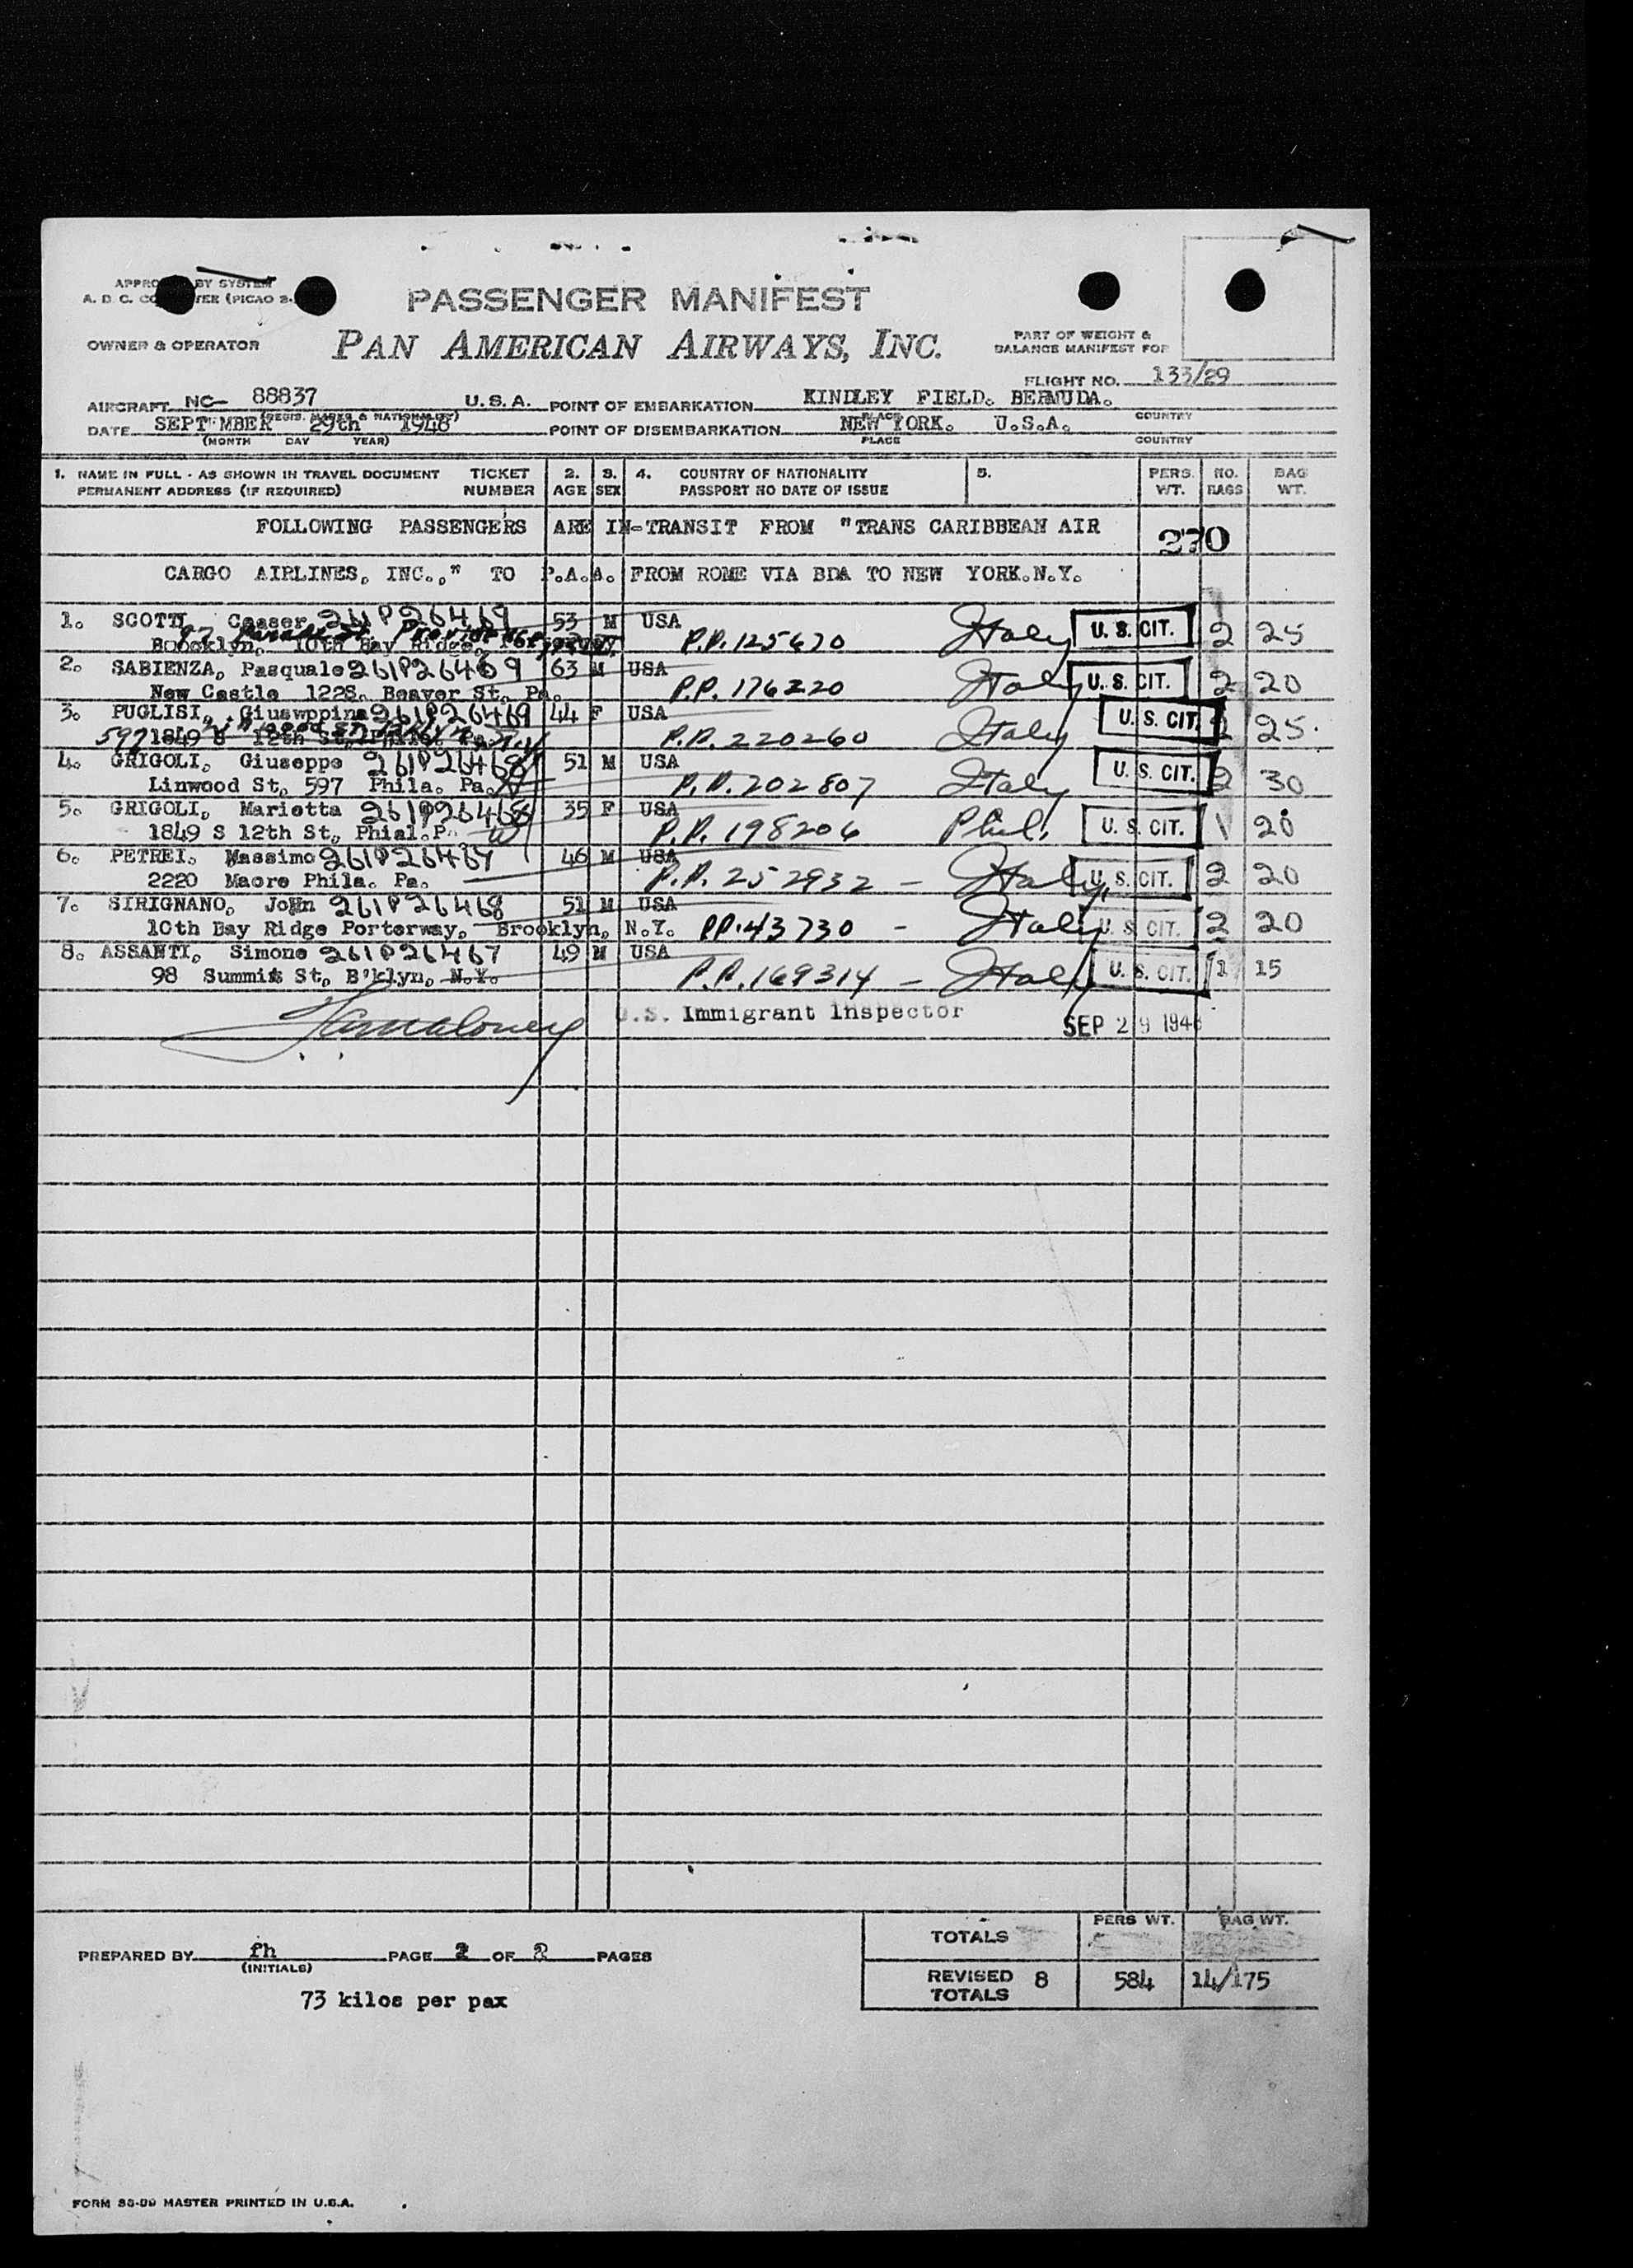 PASSENGER MANIFEST
OWNER & OPERATOR PAN AMERICAN AIRWAYS, INC.
PART OF WEIGHT &
BALANCE MANIFEST FOR
FLIGHT NO. 133/29
AIRCRAFT NC- 88837 U.S.A. POINT OF EMBARKATION KINDLEY FIELD. BERMUDA.
(REGIS. MARKS & NATIONALITY) PLACE COUNTRY
DATE SEPT MBER 29th 1948 POINT OF DISEMBARKATION NEW YORK. U.S.A.
(MONTH DAY YEAR) PLACE COUNTRY
1. NAME IN FULL - AS SHOWN IN TRAVEL DOCUMENT TICKET 2. 3. 4. COUNTRY OF NATIONALITY 5. PERS. NO. BAG
PERMANENT ADDRESS (IF REQUIRED) NUMBER AGE SEX PASSPORT NO DATE OF ISSUE WT. BAGS WT.
FOLLOWING PASSENGERS ARE IN-TRANSIT FROM "TRANS CARIBBEAN AIR 270
CARGO AIRLINES, INC.," TO P.A.A. FROM ROME VIA BDA TO NEW YORK.N.Y.
1. SCOTTI, Ceaser 261P26469 53 M USA Italy U. S. CIT. 2 25
10th Bay Ridge, P.P. 125670
2. SABIENZA, Pasquale 261P26469 63 M USA Italy U. S. CIT. 2 20
New Castle 1228. Beaver St. Pa. P.P. 176220
3. PUGLISI, Giuswppina 261P26469 44 F USA Italy U. S. CIT. 25
597 1849 S 12th St. P.P. 220260
4. GRIGOLI, Giuseppe 261P26468 51 M USA Italy U. S. CIT. 2 30
Linwood St, 597 Phila. Pa. P.P. 202807
5. GRIGOLI, Marietta 261P26468 35 F USA Phil. U. S. CIT. 1 20
1849 S 12th St, Phial.P. P.P. 198206
6. PETREI. Massimo 261P26467 46 M USA Italy U. S. CIT. 2 20
2220 Maore Phila. Pa. P.P. 252932 -
7. SIRIGNANO, John 261P26468 51 M USA Italy U. S. CIT. 2 20
10th Bay Ridge Porterway, Brooklyn, N.Y. PP.43730 -
8. ASSANTI, Simone 261P26467 49 M USA Italy U. S. CIT. 1 15
98 Summit St, B'klyn, N.Y. P.P. 169314 -
U.S. Immigrant Inspector
SEP 29 1948
PERS WT. BAG WT.
TOTALS
PREPARED BY fh PAGE 2 OF 2 PAGES
(INITIALS)
REVISED TOTALS 8 584 14/175
73 kilos per pax
FORM 36-09 MASTER PRINTED IN U.S.A.